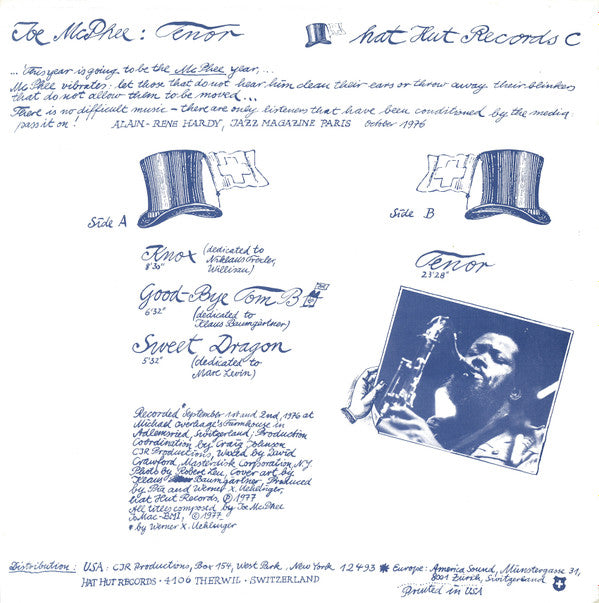 Joe McPhee: Tenor
hat Hut Records C
... This year is going to be the McPhee year,...
Mc Phee vibrates: let those that do not hear him clean their ears or throw away their blinkers
that do not allow them to be moved...
There is no difficult music – there are only listeners that have been conditioned by the media.
pass it on! ALAIN-RENE HARDY, JAZZ MAGAZINE PARIS October 1976
Side A
Knox (dedicated to
8'30" Niklaus Troxler,
Willisau)
Good-Bye Tom B.
6'32" (dedicated to
Klaus Baumgärtner)
Sweet Dragon
5'32" (dedicated to
Marc Levin)
Side B
Tenor
23'28"
Recorded * September 1st and 2nd, 1976 at
Michael Overhage's Farmhouse in
Adlemsried, Switzerland; Production
Coordination by Craig Johnson
CJR Productions, Waxed by David
Crawford, Masterdisk Corporation N.Y.
Photo by Robert Leu, Cover art by
Klaus Baumgärtner, Produced
by Pia and Werner X. Uehlinger,
Hat Hut Records, ℗ 1977
All titles composed by Joe McPhee
JoMac-BMI, © 1977
* by Werner X. Uehlinger
Distribution: USA: CJR Productions, Box 154, West Park, New York 12493 * Europe: America Sound, Münstergasse 31,
8001 Zürich, Switzerland
HAT HUT RECORDS • 4106 THERWIL • SWITZERLAND
Printed in USA